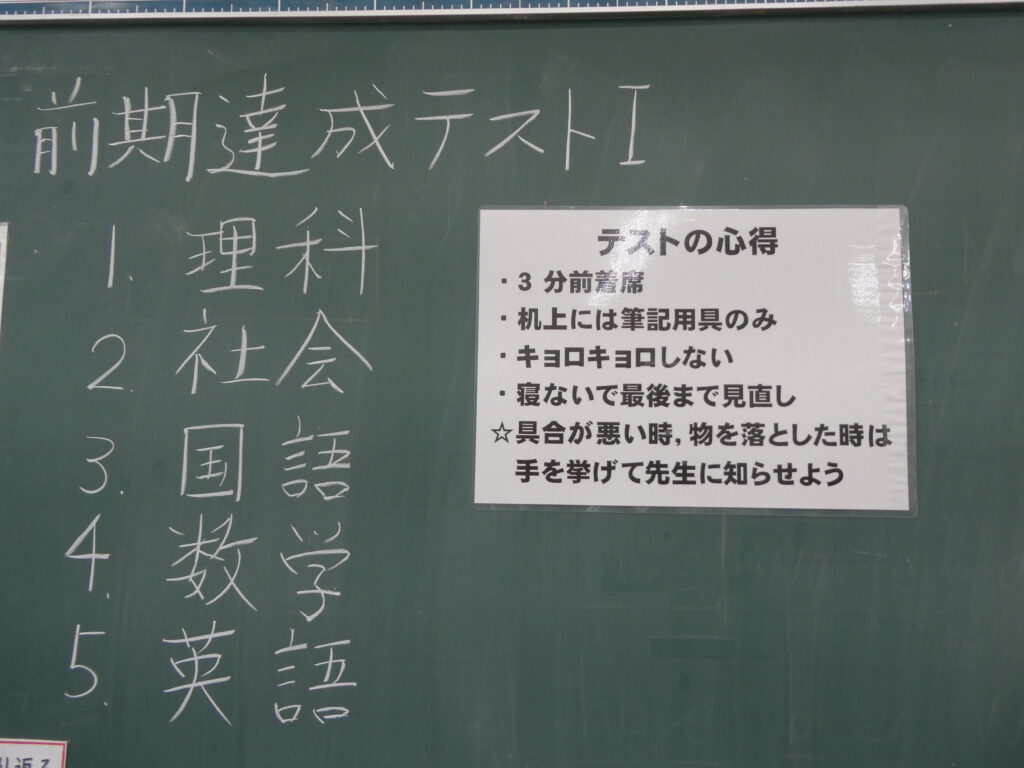 前期達成テストI
1. 理科
2. 社会
3. 国語
4. 数学
5. 英語
テストの心得
・3 分前着席
・机上には筆記用具のみ
・キョロキョロしない
・寝ないで最後まで見直し
☆具合が悪い時,物を落とした時は
手を挙げて先生に知らせよう